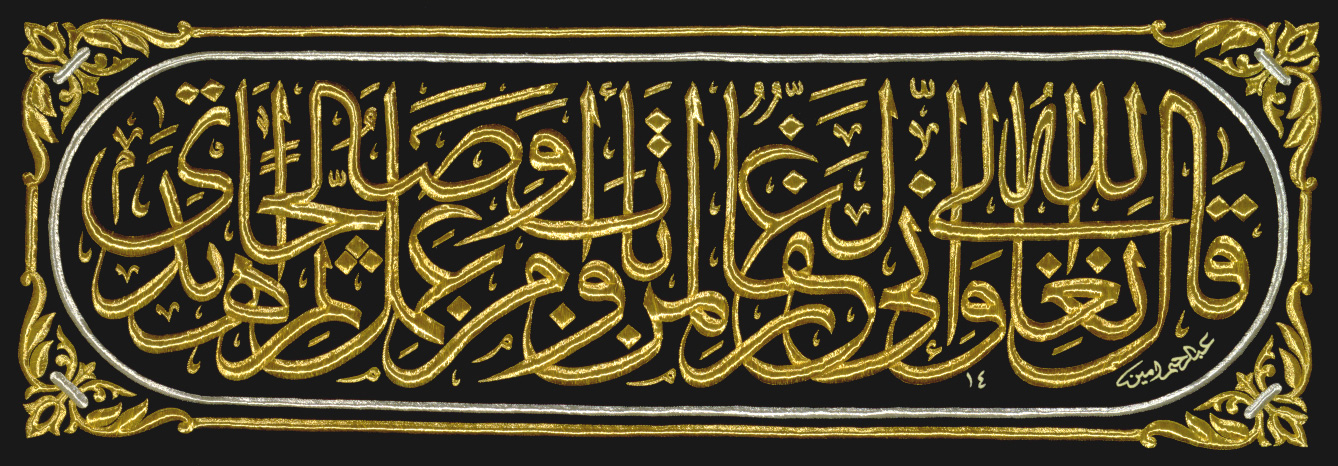 قال الله تعالى وإني لغفار لمن تاب وآمن وعمل صالحا ثم اهتدى
عبدالرحيم امين
١٤